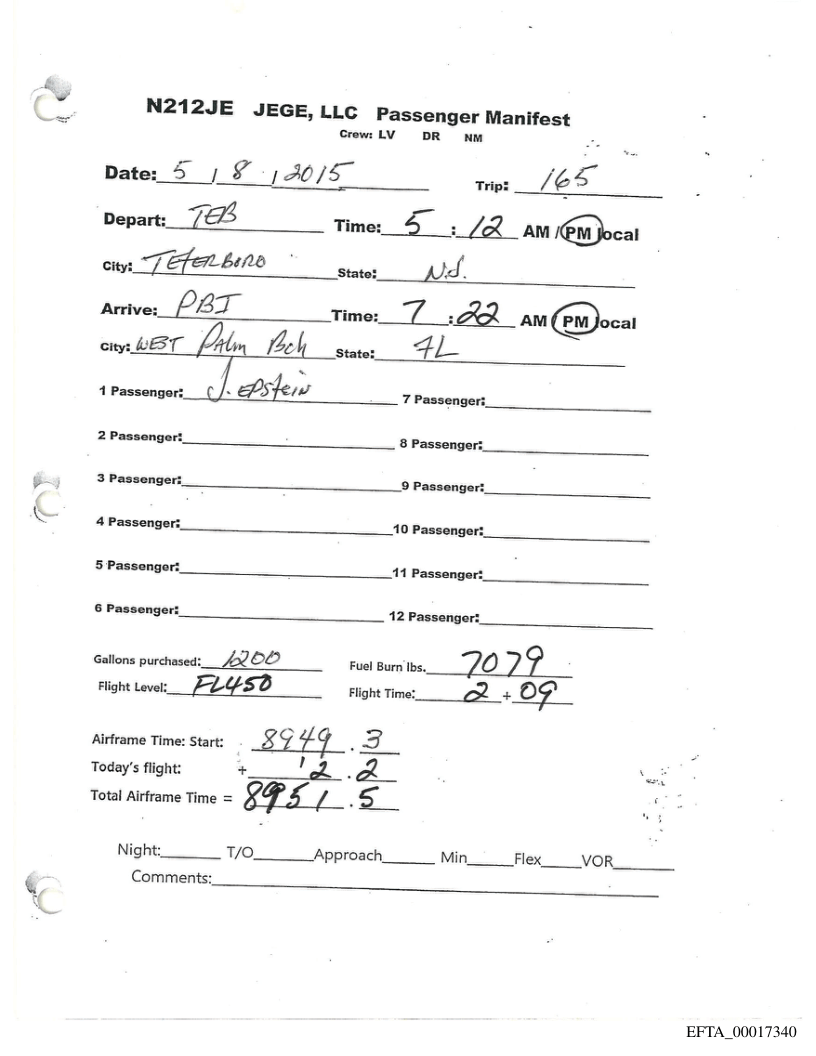 N212JE JEGE, LLC Passenger Manifest
Crew: LV DR NM
Date: 5 / 8 / 2015 Trip: 165
Depart: TEB Time: 5 : 12 AM / PM local
City: TETERBORO State: N.J.
Arrive: PBI Time: 7 : 22 AM / PM local
City: WEST PAlm Bch State: FL
1 Passenger: J. EPStEiN 7 Passenger:
2 Passenger: 8 Passenger:
3 Passenger: 9 Passenger:
4 Passenger: 10 Passenger:
5 Passenger: 11 Passenger:
6 Passenger: 12 Passenger:
Gallons purchased: 1200 Fuel Burn lbs. 7079
Flight Level: FL450 Flight Time: 2 + 09
Airframe Time: Start: 8949 . 3
Today's flight: + 2 . 2
Total Airframe Time = 8951 . 5
Night: T/O Approach Min Flex VOR
Comments:
EFTA_00017340